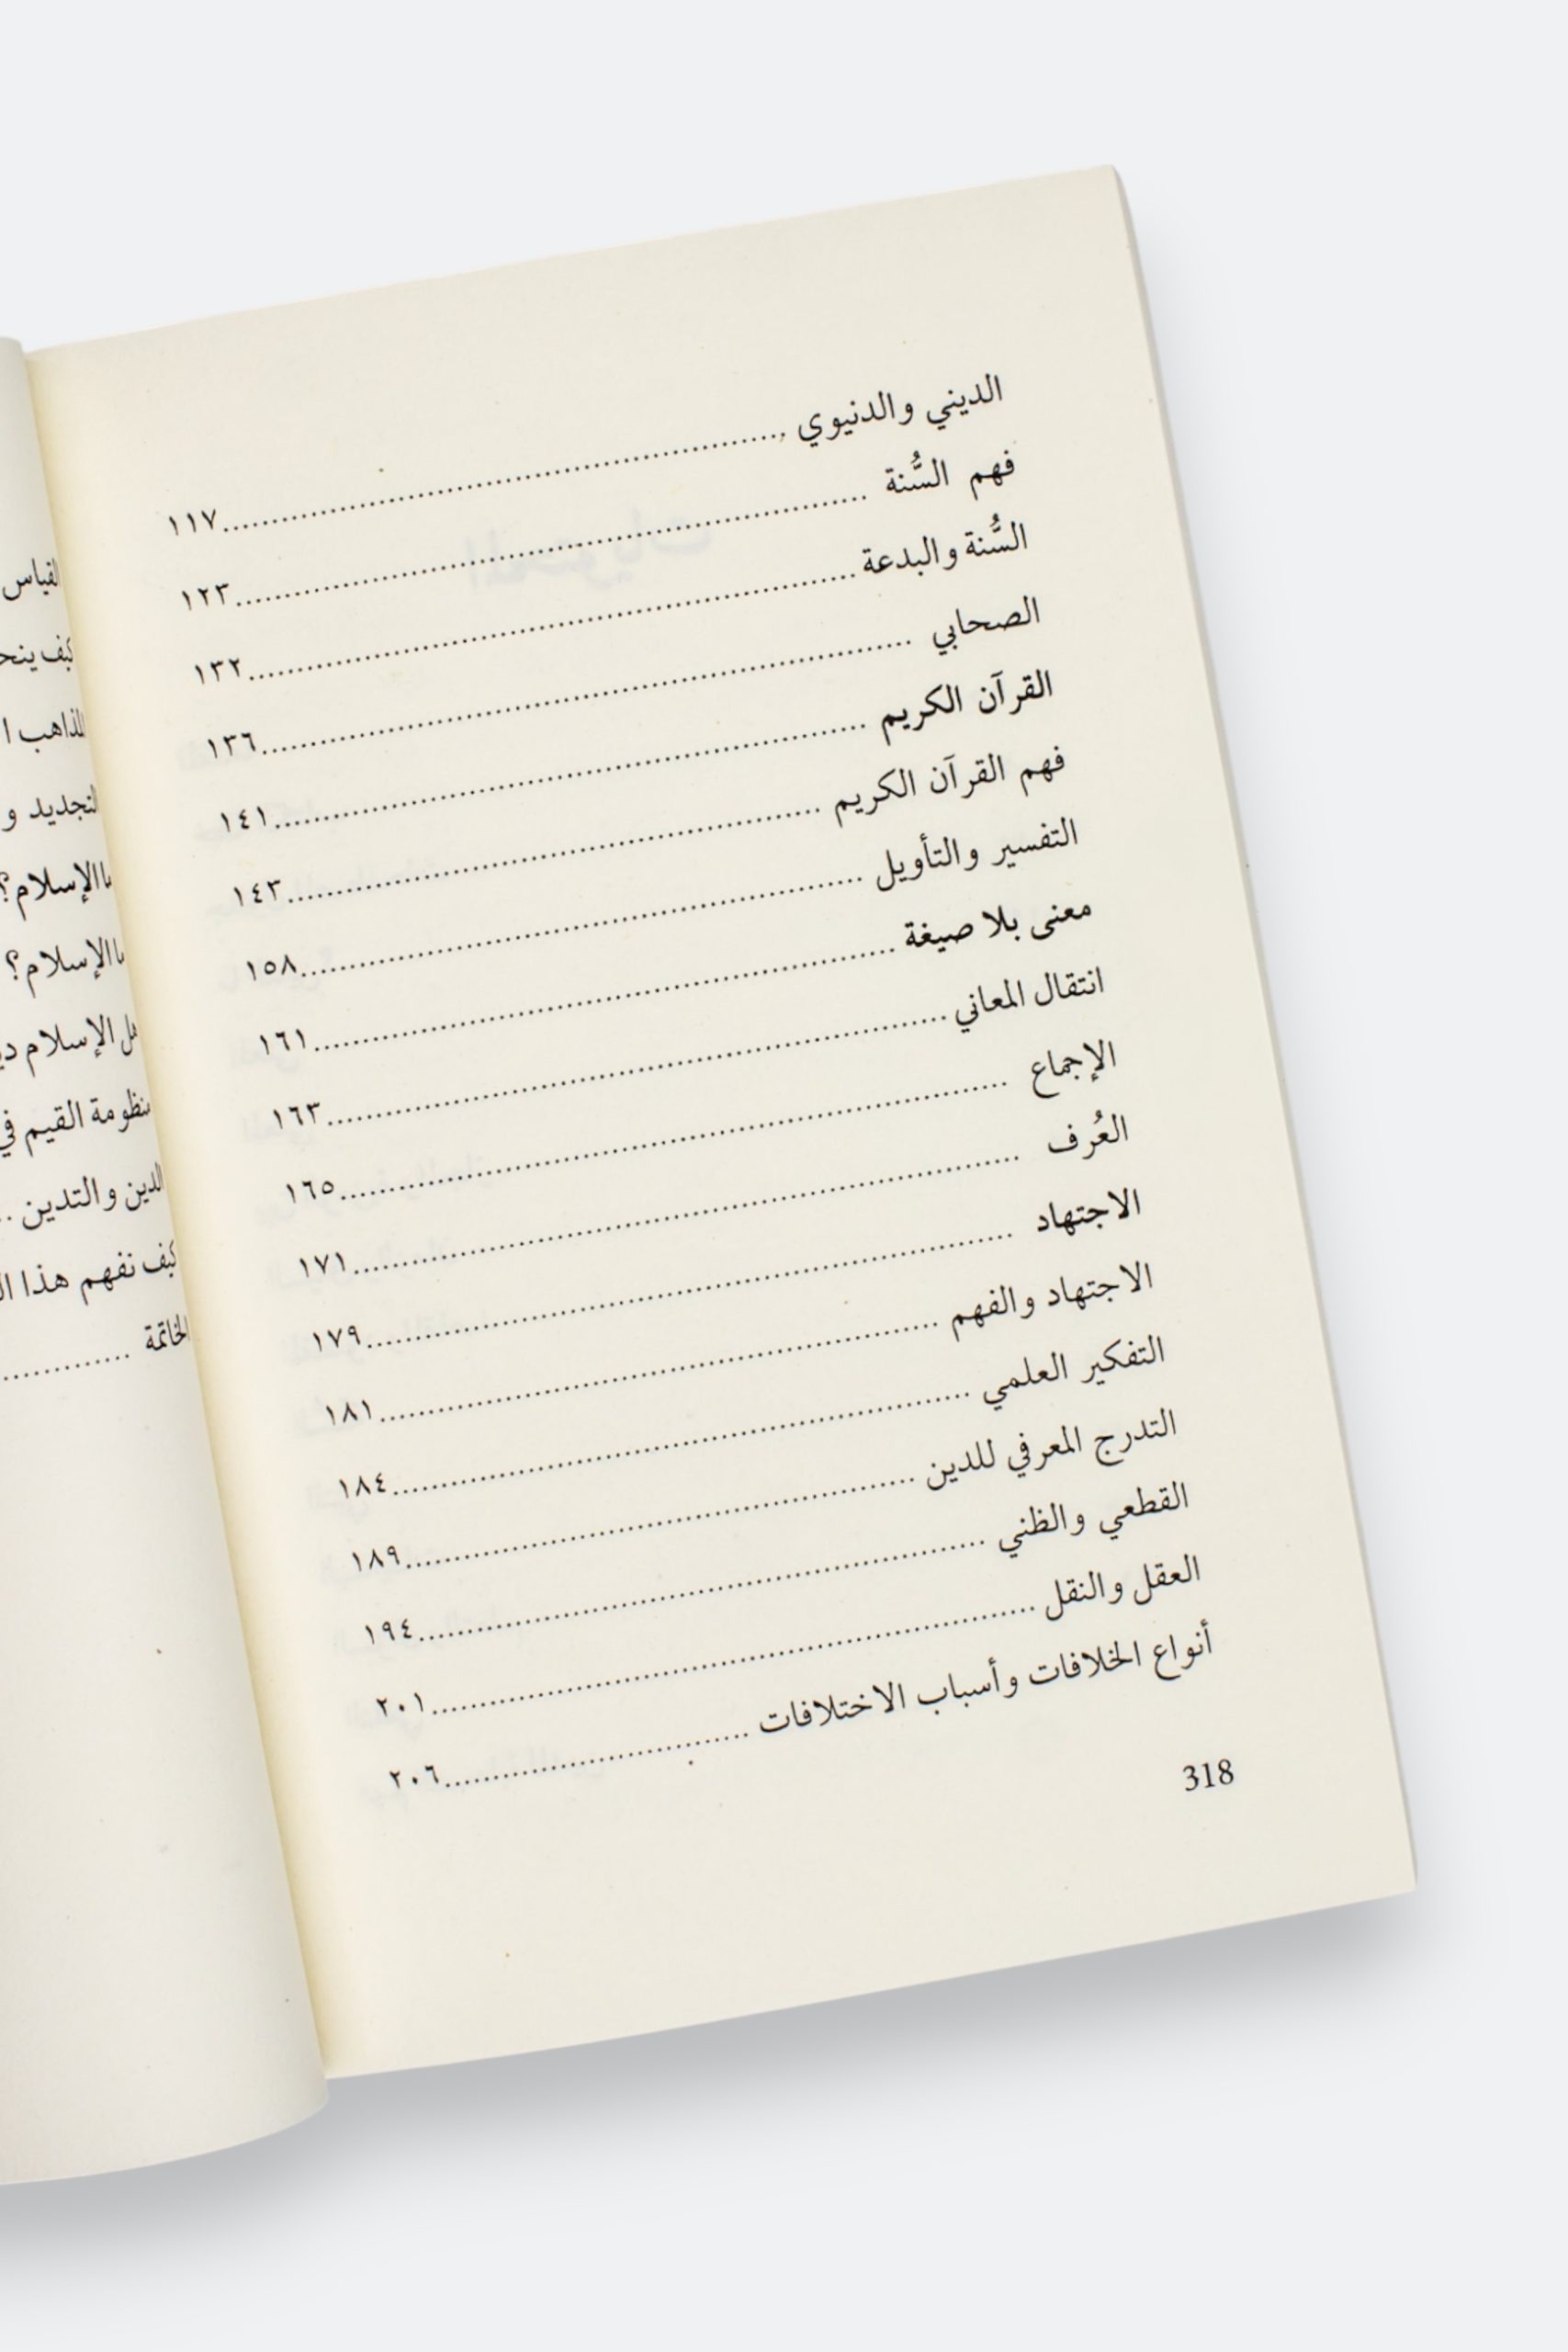 الديني والدنيوي ........ ١١٧
فهم السُّنة ........ ١٢٣
السُّنة والبدعة ........ ١٣٢
الصحابي ........ ١٣٦
القرآن الكريم ........ ١٤١
فهم القرآن الكريم ........ ١٤٣
التفسير والتأويل ........ ١٥٨
معنى بلا صيغة ........ ١٦١
انتقال المعاني ........ ١٦٣
الإجماع ........ ١٦٥
العُرف ........ ١٧١
الاجتهاد ........ ١٧٩
الاجتهاد والفهم ........ ١٨١
التفكير العلمي ........ ١٨٤
التدرج المعرفي للدين ........ ١٨٩
القطعي والظني ........ ١٩٤
العقل والنقل ........ ٢٠١
أنواع الخلافات وأسباب الاختلافات ........ ٢٠٦
318
القياس
كيف
المذاهب
التجديد و
الإسلام؟
الإسلام؟
الإسلام
منظومة القيم في
الدين والتدين ..
كيف نفهم هذا
الخاتمة ........